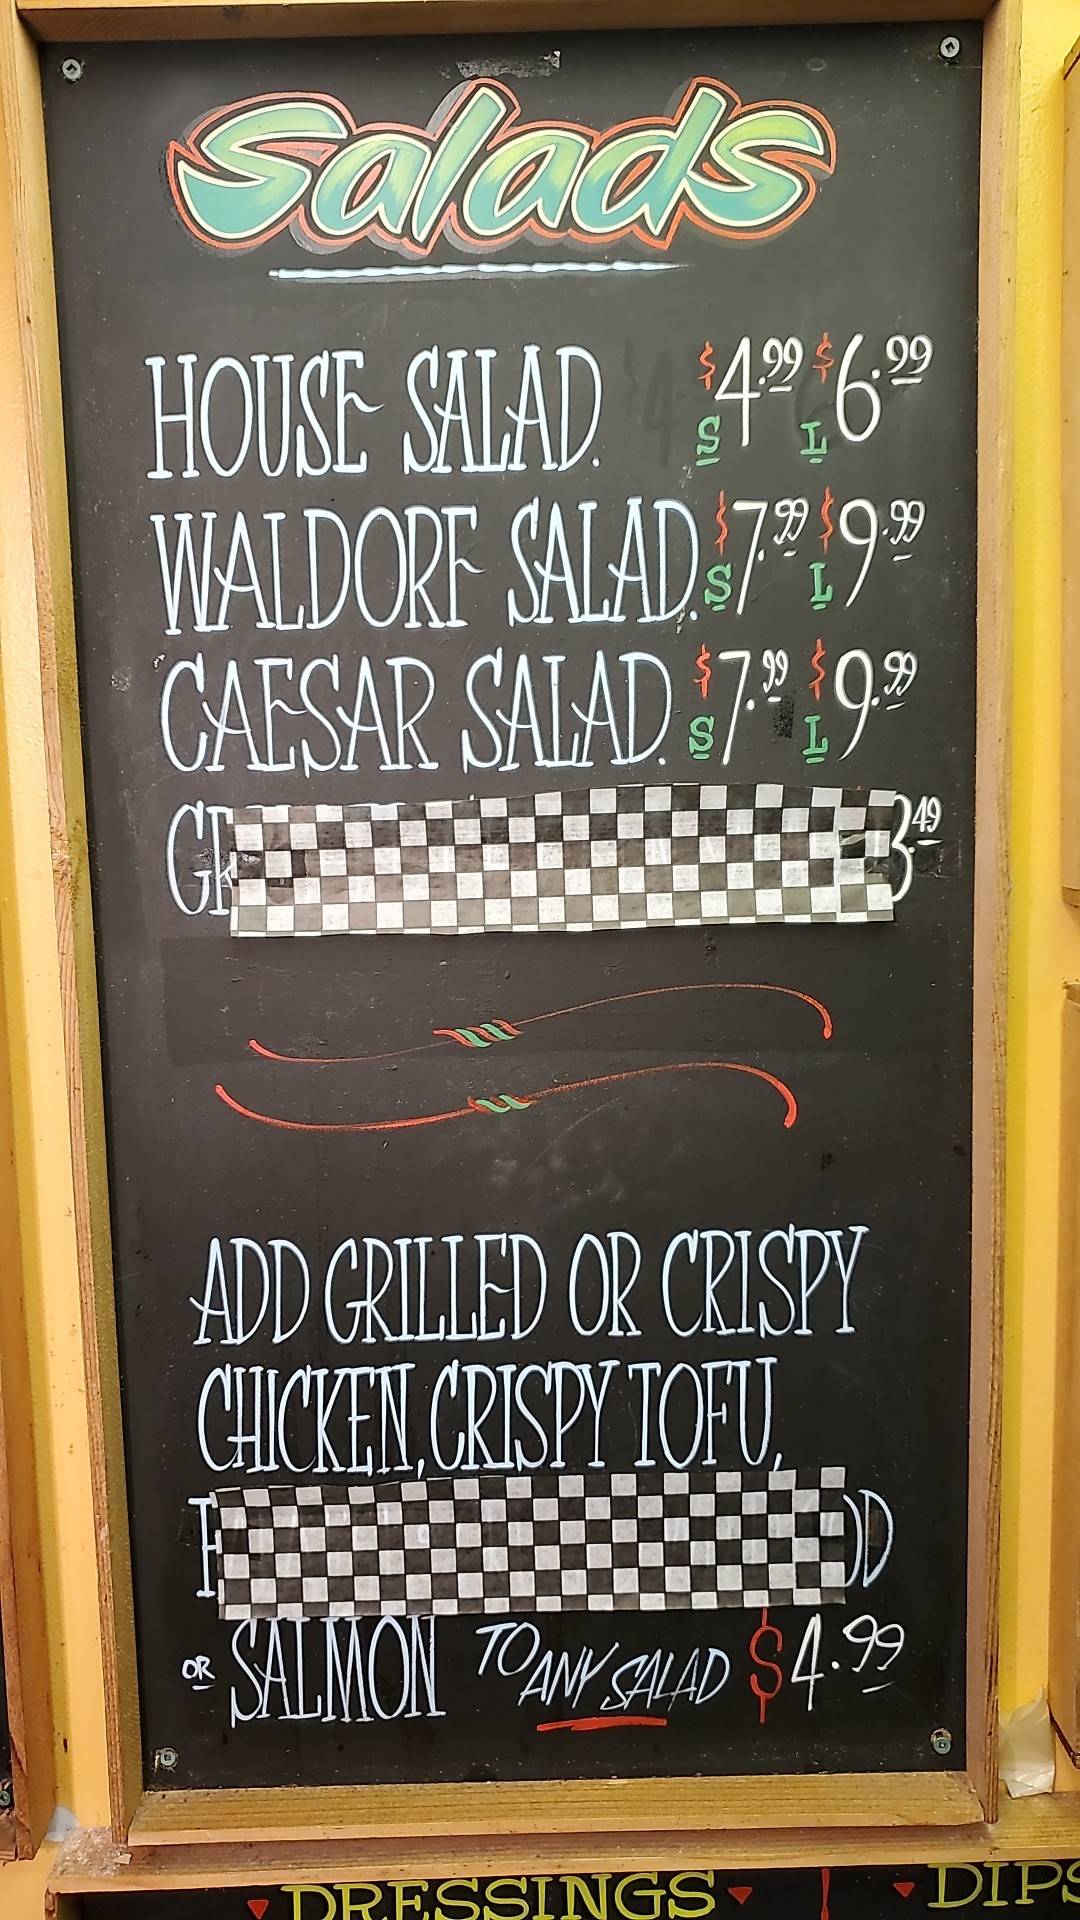 Salads
HOUSE SALAD. $4.99 $6.99
S L
WALDORF SALAD. $7.99 $9.99
S L
CAESAR SALAD. $7.99 $9.99
S L
3.49
ADD GRILLED OR CRISPY
CHICKEN, CRISPY TOFU,
OR SALMON TO ANY SALAD $4.99
DRESSINGS
DIPS